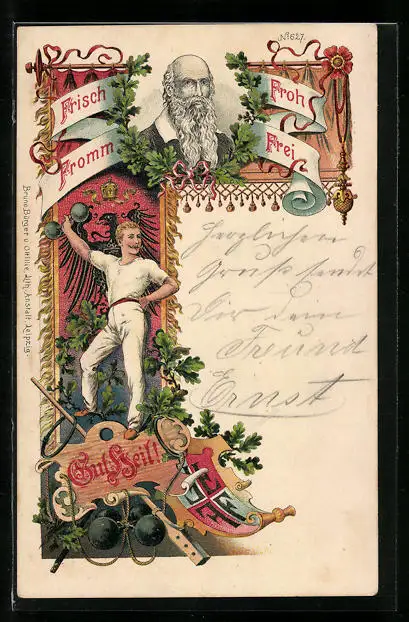 No. 627.
Frisch
Froh
Fromm
Frei
Herzlichen
Gruß sendet
Dir dein
Freund
Ernst
Gut Heil!
Bruno Bürger & Ottillie, Lith. Anstalt Leipzig.